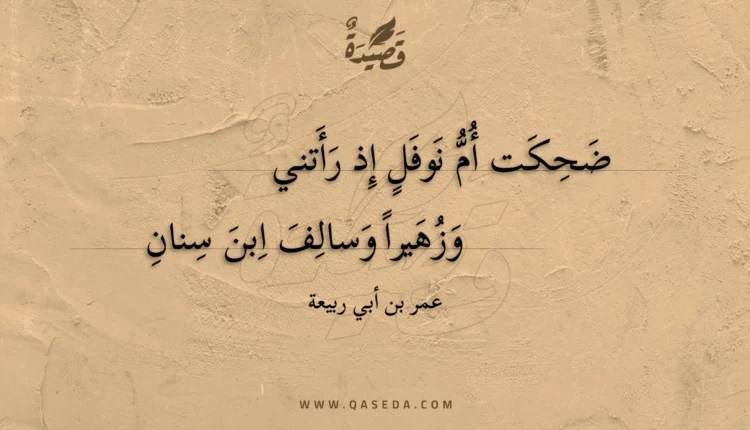 قَصِيدَةٌ
ضَحِكَت أُمُّ نَوفَلٍ إِذ رَأَتني
وَزُهَيراً وَسالِفَ اِبنَ سِنانِ
عمر بن أبي ربيعة
WWW.QASEDA.COM